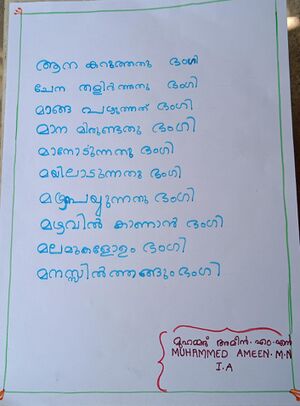 ആന കറുത്തതു ഭംഗി
ചേന തളിർത്തതു ഭംഗി
മാങ്ങ പഴുത്തത് ഭംഗി
മാന മിരുണ്ടതു ഭംഗി
മാനോടുന്നതു ഭംഗി
മയിലാടുന്നതു ഭംഗി
മഴപെയ്യുന്നതു ഭംഗി
മഴവിൽ കാണാൻ ഭംഗി
മലമുകളോളം ഭംഗി
മനസ്സിൽത്തങ്ങും ഭംഗി
മുഹമ്മദ് അമീൻ.എം.എൻ
MUHAMMED AMEEN.M.N
I.A